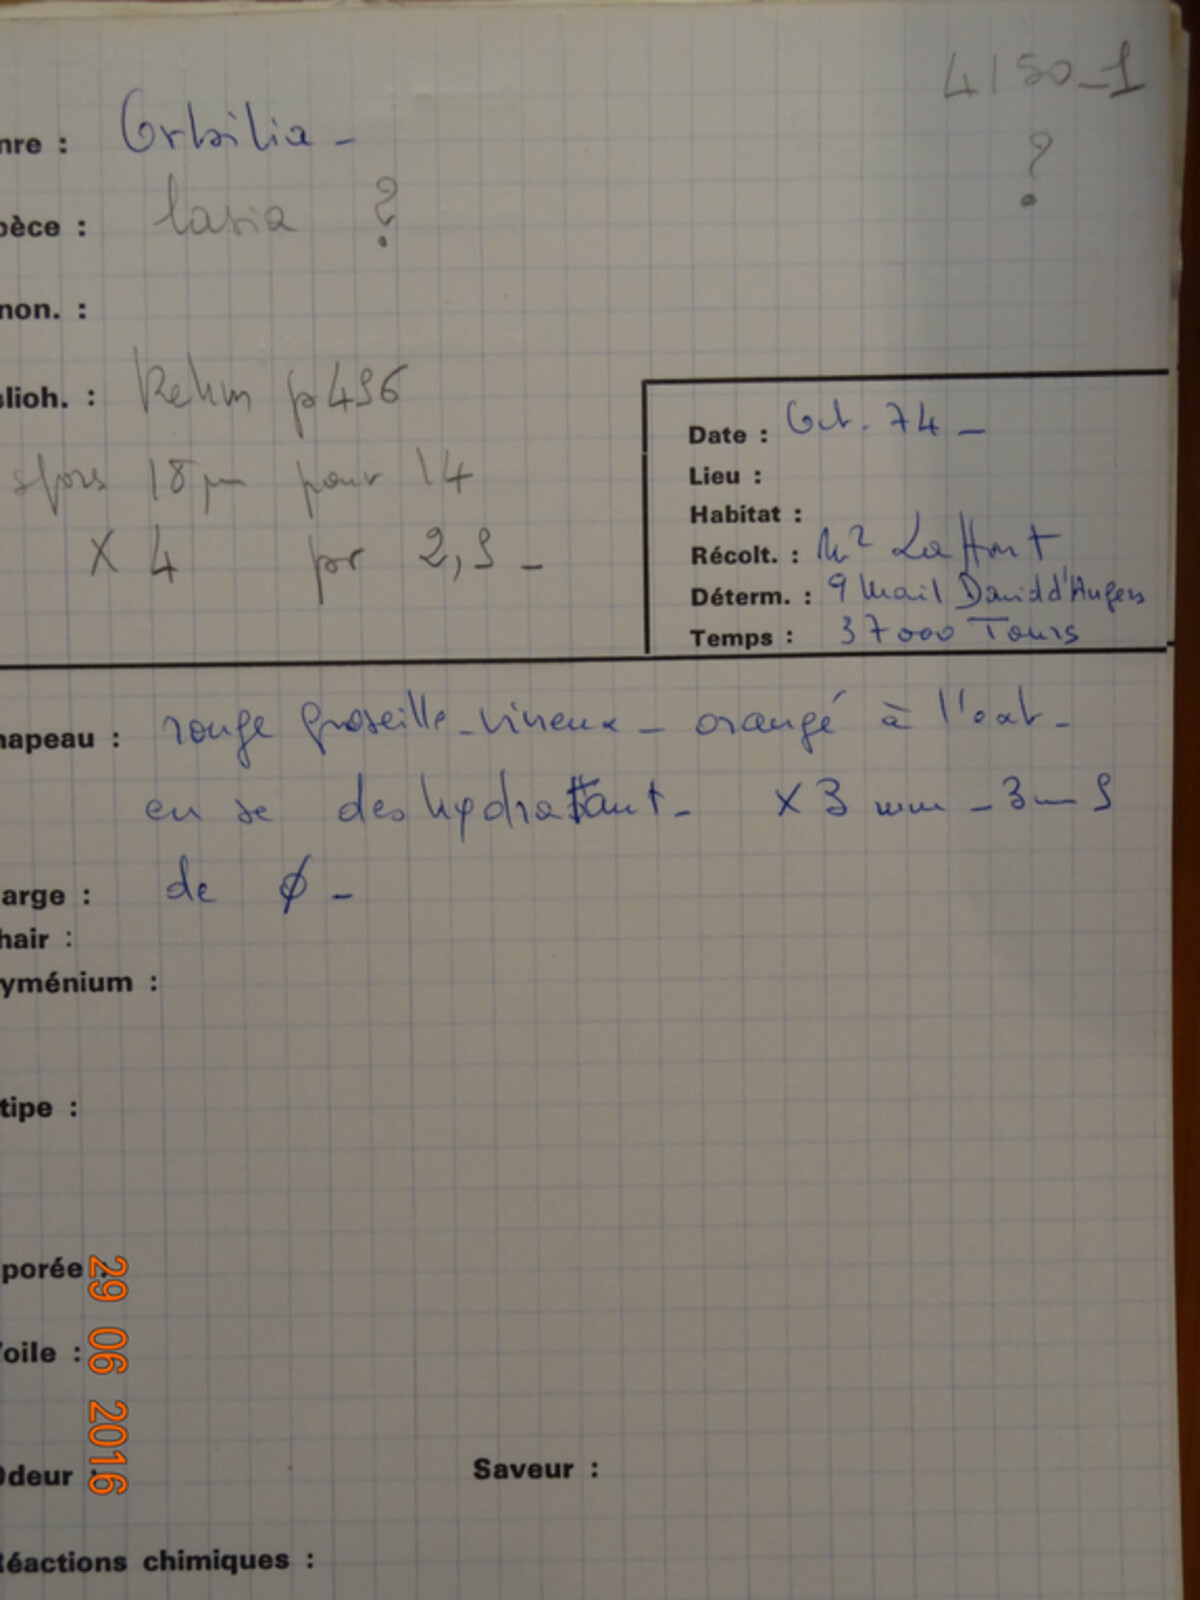 4150_1
nre : Orbilia -
?
pèce : lasia ?
non. :
lioh. : Rehm p 496
Date : Oct. 74 -
spors 18 µm pour 14
Lieu :
Habitat :
X 4 pr 2,5 -
Récolt. : Laffont
Déterm. : 9 Mail David d'Angers
Temps : 37000 Tours
hapeau : rouge groseille-vineux - orangé à l'ext -
en se deshydratant - X 3 mm - 3 - 5
arge : de ϕ -
hair :
yménium :
tipe :
porée :
oile :
deur :
Saveur :
Réactions chimiques :
29 06 2016